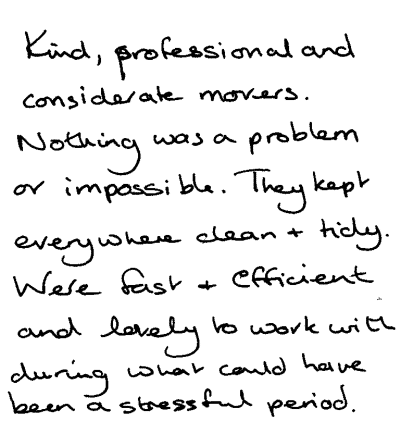 Kind, professional and
considerate movers.
Nothing was a problem
or impossible. They kept
everywhere clean + tidy.
Were fast + efficient
and lovely to work with
during what could have
been a stressful period.